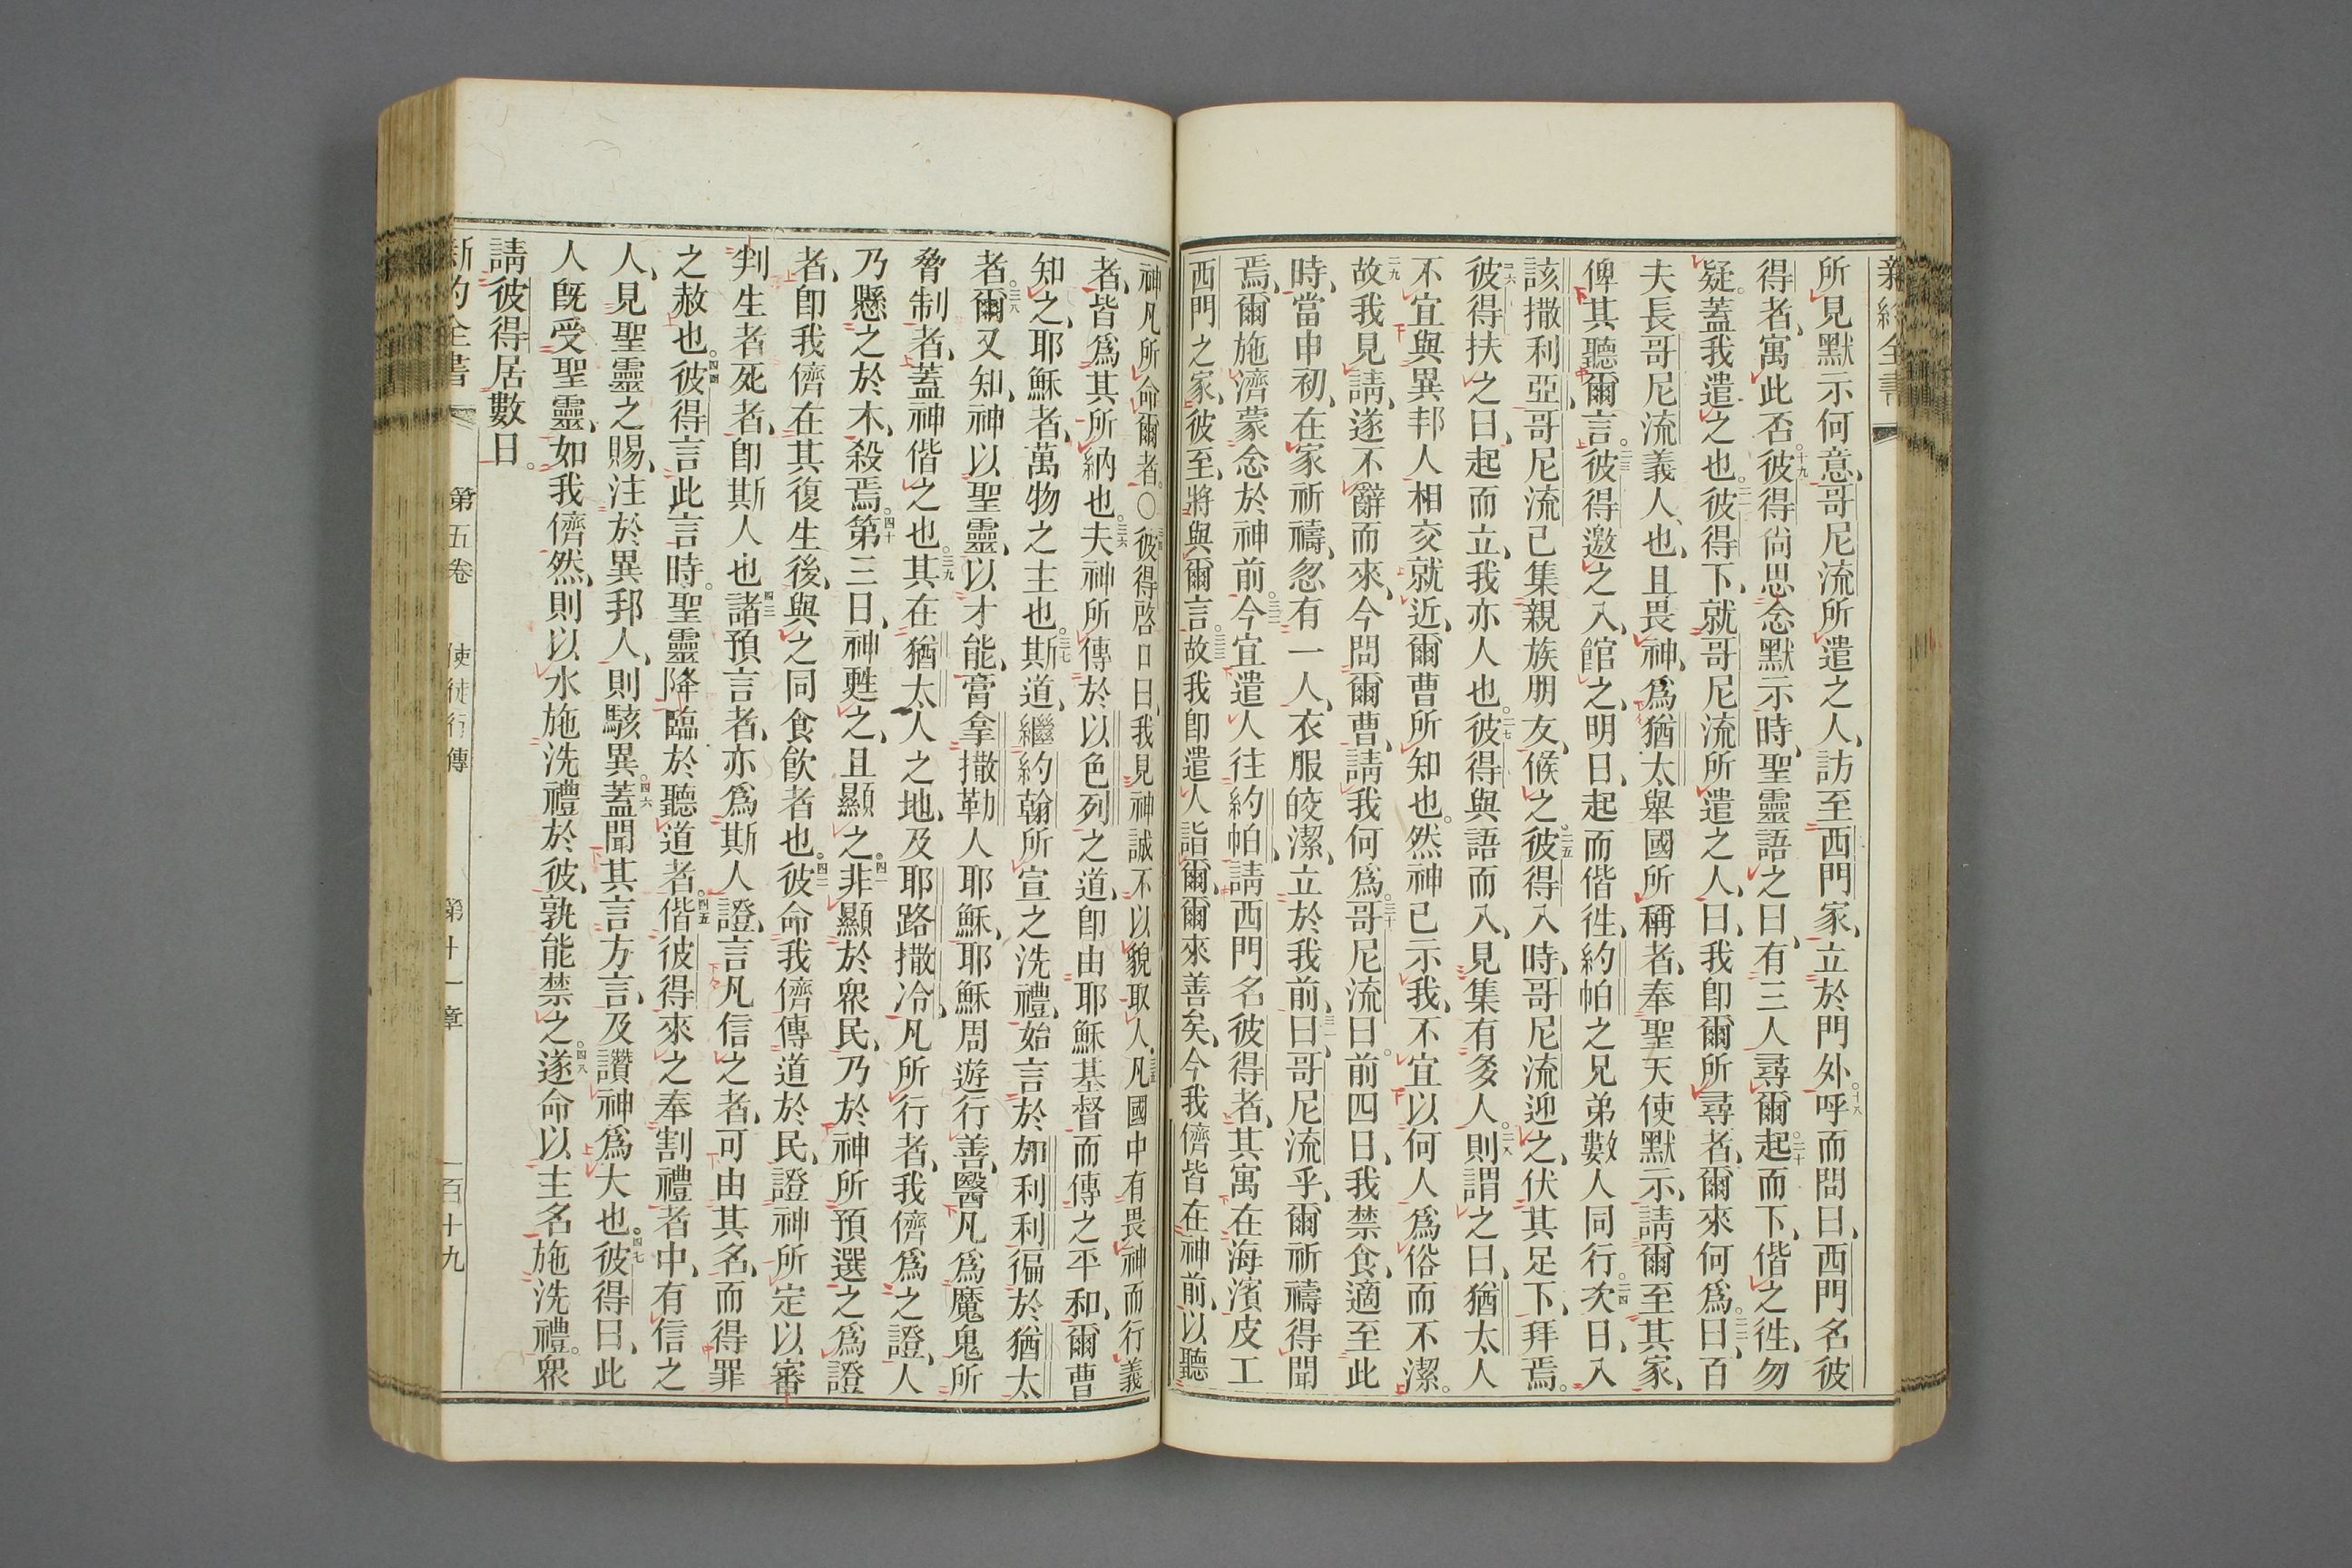 新約全書
所見默示何意、哥尼流所遣之人、訪至西門家、立於門外、十八呼而問曰、西門名彼
得者、寓此否。十九彼得尙思念默示時、聖靈語之曰、有三人尋爾、二十起而下、偕之徃、勿
疑。蓋我遣之也。二一彼得下、就哥尼流所遣之人、曰、我卽爾所尋者、爾來何爲。二二曰、百
夫長哥尼流義人也、且畏神、爲猶太舉國所稱者、奉聖天使默示、請爾至其家、
俾其聽爾言。二三彼得邀之入、館之、明日、起而偕徃、約帕之兄弟數人同行。二四次日、入
該撒利亞、哥尼流已集親族朋友、候之、二五彼得入時、哥尼流迎之、伏其足下、拜焉。
二六彼得扶之曰、起而立、我亦人也。二七彼得與語而入、見集有多人、二八則謂之曰、猶太人
不宜與異邦人相交就近、爾曹所知也。然神已示我、不宜以何人爲俗而不潔。
二九故我見請、遂不辭而來、今問爾曹、請我何爲。三十哥尼流曰。前四日、我禁食、適至此
時、當申初、在家祈禱、忽有一人、衣服皎潔、立於我前、三一曰、哥尼流乎、爾祈禱得聞
焉、爾施濟蒙念於神前。三二今宜遣人往約帕、請西門名彼得者、其寓在海濱皮工
西門之家、彼至、將與爾言。三三故我卽遣人詣爾、爾來善矣、今我儕皆在神前、以聽
神凡所命爾者。〇三四彼得啓口曰、我見神誠不以貌取人、三五凡國中有畏神而行義
者、皆爲其所納也。三六夫神所傳於以色列之道、卽由耶穌基督而傳之平和、爾曹
知之、耶穌者、萬物之主也。三七斯道、繼約翰所宣之洗禮、始言於加利利、徧於猶太
者、三八爾又知、神以聖靈、以才能、膏拿撒勒人耶穌、耶穌周遊行善、醫凡爲魔鬼所
脅制者、蓋神偕之也。三九其在猶太人之地、及耶路撒冷、凡所行者、我儕爲之證、人
乃懸之於木、殺焉。四十第三日、神甦之、且顯之、四一非顯於衆民、乃於神所預選之爲證
者、卽我儕在其復生後、與之同食飮者也。四二彼命我儕傳道於民、證神所定以審
判生者死者、卽斯人也、四三諸預言者、亦爲斯人證、言凡信之者、可由其名、而得罪
之赦也。四四彼得言此言時。聖靈降臨於聽道者。四五偕彼得來之奉割禮者中、有信之
人、見聖靈之賜、注於異邦人、則駭異。四六蓋聞其言方言、及讚神爲大也。四七彼得曰、此
人旣受聖靈、如我儕然、則以水施洗禮於彼、孰能禁之。四八遂命以主名施洗禮。衆
請彼得居數日。
新約全書 第五卷 使徒行傳 第十一章 一百十九